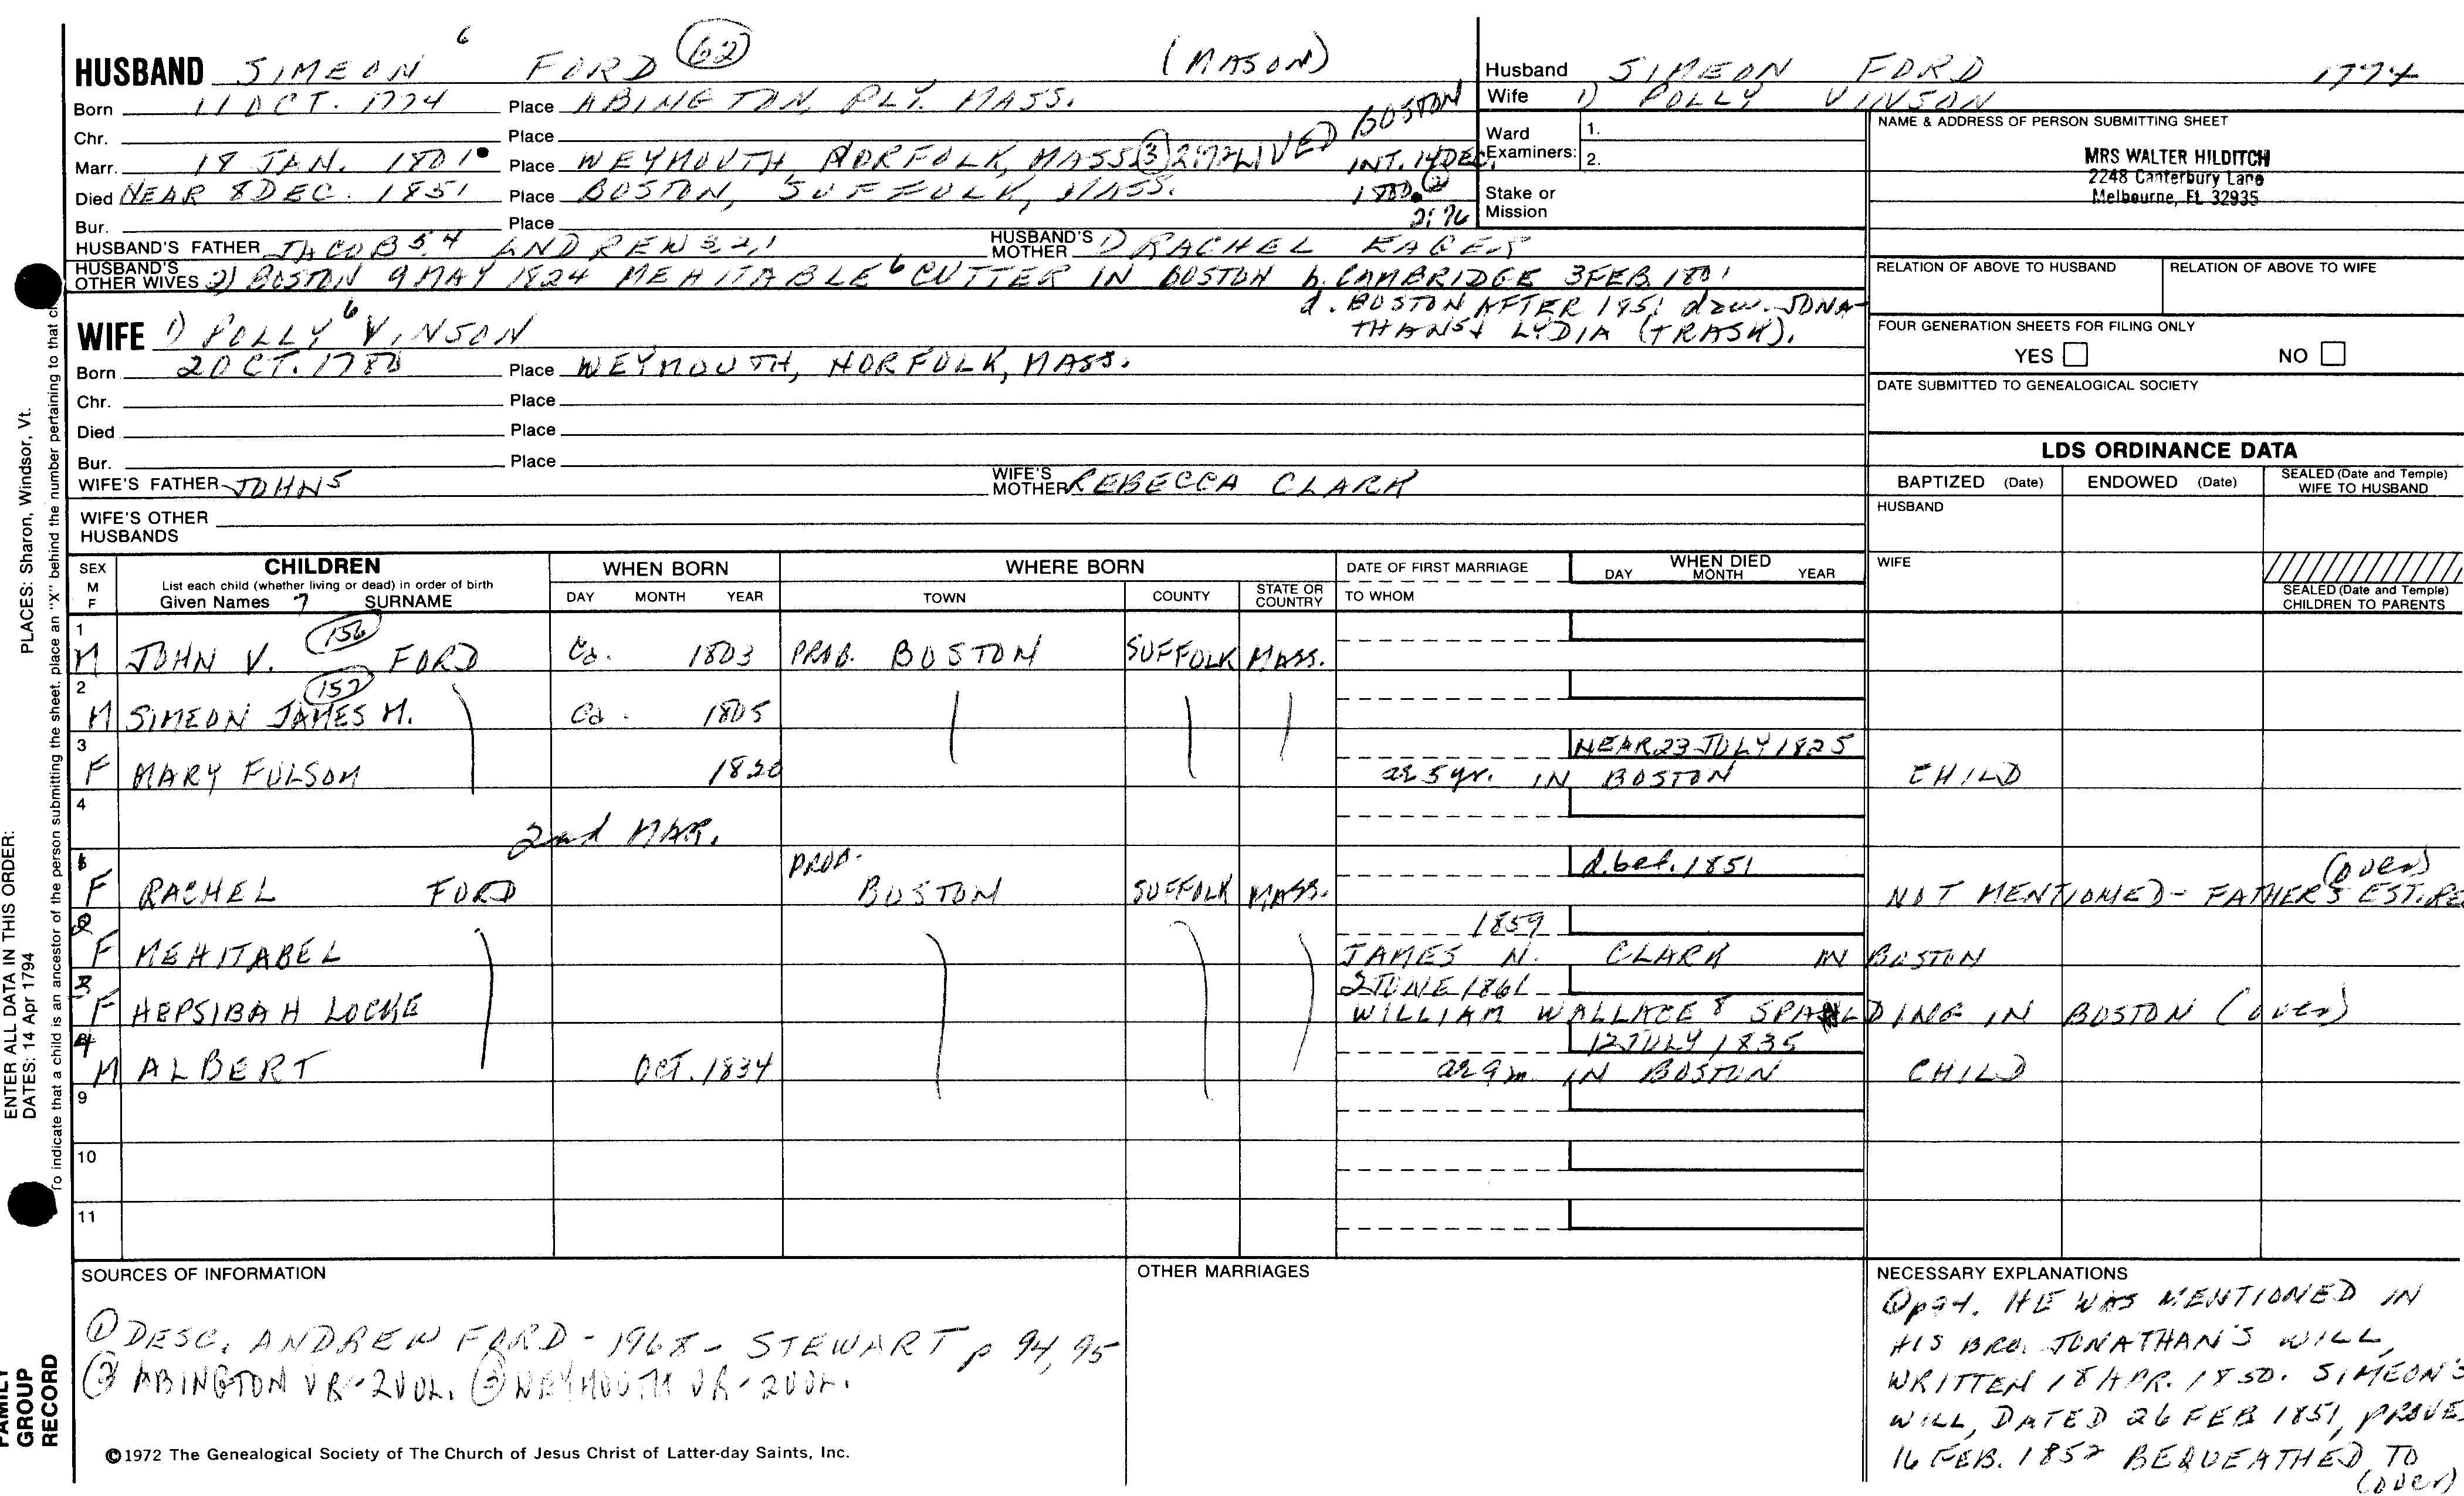 HUSBAND SIMEON 6 FORD (62) (MASON)
Born 11 OCT. 1774 Place ABINGTON, PLY. MASS.
Chr. Place
Marr. 18 JAN. 1801 Place WEYMOUTH, NORFOLK, MASS. (3) 2:72 LIVED BOSTON INT. 14 DEC. 1800. (2) 2:76
Died NEAR 8 DEC. 1851 Place BOSTON, SUFFOLK, MASS.
Bur. Place
HUSBAND'S FATHER JACOB 5,4 ANDREW 3,2,1 HUSBAND'S MOTHER 1) RACHEL EAGER
HUSBAND'S OTHER WIVES 2) BOSTON 9 MAY 1824 MEHITABLE 6 CUTTER IN BOSTON b. CAMBRIDGE 3 FEB. 1801
d. BOSTON AFTER 1851 dau. JONA-
THAN 5 & LYDIA (TRASK).
WIFE 1) POLLY 6 VINSON
Born 2 OCT. 1780 Place WEYMOUTH, NORFOLK, MASS.
Chr. Place
Died Place
Bur. Place
WIFE'S FATHER JOHN 5 WIFE'S MOTHER REBECCA CLARK
WIFE'S OTHER HUSBANDS
Husband SIMEON FORD 1774
Wife 1) POLLY VINSON
Ward Examiners: 1.
2.
Stake or Mission
NAME & ADDRESS OF PERSON SUBMITTING SHEET
MRS WALTER HILDITCH
2248 Canterbury Lane
Melbourne, FL 32935
RELATION OF ABOVE TO HUSBAND RELATION OF ABOVE TO WIFE
FOUR GENERATION SHEETS FOR FILING ONLY
YES NO
DATE SUBMITTED TO GENEALOGICAL SOCIETY
LDS ORDINANCE DATA
BAPTIZED (Date) ENDOWED (Date) SEALED (Date and Temple) WIFE TO HUSBAND
HUSBAND
WIFE
SEALED (Date and Temple) CHILDREN TO PARENTS
SEX M F CHILDREN List each child (whether living or dead) in order of birth Given Names 7 SURNAME WHEN BORN DAY MONTH YEAR WHERE BORN TOWN COUNTY STATE OR COUNTRY DATE OF FIRST MARRIAGE TO WHOM WHEN DIED DAY MONTH YEAR
1 M JOHN V. (156) FORD Ca. 1803 PROB. BOSTON SUFFOLK MASS.
2 M SIMEON JAMES M. (157) Ca. 1805
3 F MARY FULSOM 1820 NEAR 23 JULY 1825 ae 5 yr. IN BOSTON CHILD
4 2nd MAR.
1 F RACHEL FORD PROB. BOSTON SUFFOLK MASS. d. bef. 1851 NOT MENTIONED - FATHER'S EST. (over)
2 F MEHITABEL 1859 JAMES N. CLARK IN BOSTON
3 F HEPSIBAH LOCKE 2 JUNE 1861 WILLIAM WALLACE 8 SPAULDING IN BOSTON (over)
4 M ALBERT OCT. 1834 12 JULY 1835 ae 9 m. IN BOSTON CHILD
9
10
11
SOURCES OF INFORMATION
(1) DESC. ANDREW FORD - 1968 - STEWART p 94, 95
(2) ABINGTON VR - 2 VOL. (3) WEYMOUTH VR - 2 VOL.
OTHER MARRIAGES
NECESSARY EXPLANATIONS
(1) p 94. HE WAS MENTIONED IN
HIS BRO. JONATHAN'S WILL,
WRITTEN 18 APR. 1850. SIMEON'S
WILL, DATED 26 FEB 1851, PROVE
16 FEB. 1852 BEQUEATHED TO
(over)
©1972 The Genealogical Society of The Church of Jesus Christ of Latter-day Saints, Inc.
PLACES: Sharon, Windsor, Vt.
ENTER ALL DATA IN THIS ORDER:
DATES: 14 Apr 1794
To indicate that a child is an ancestor of the person submitting the sheet, place an "X" behind the number pertaining to that
FAMILY GROUP RECORD